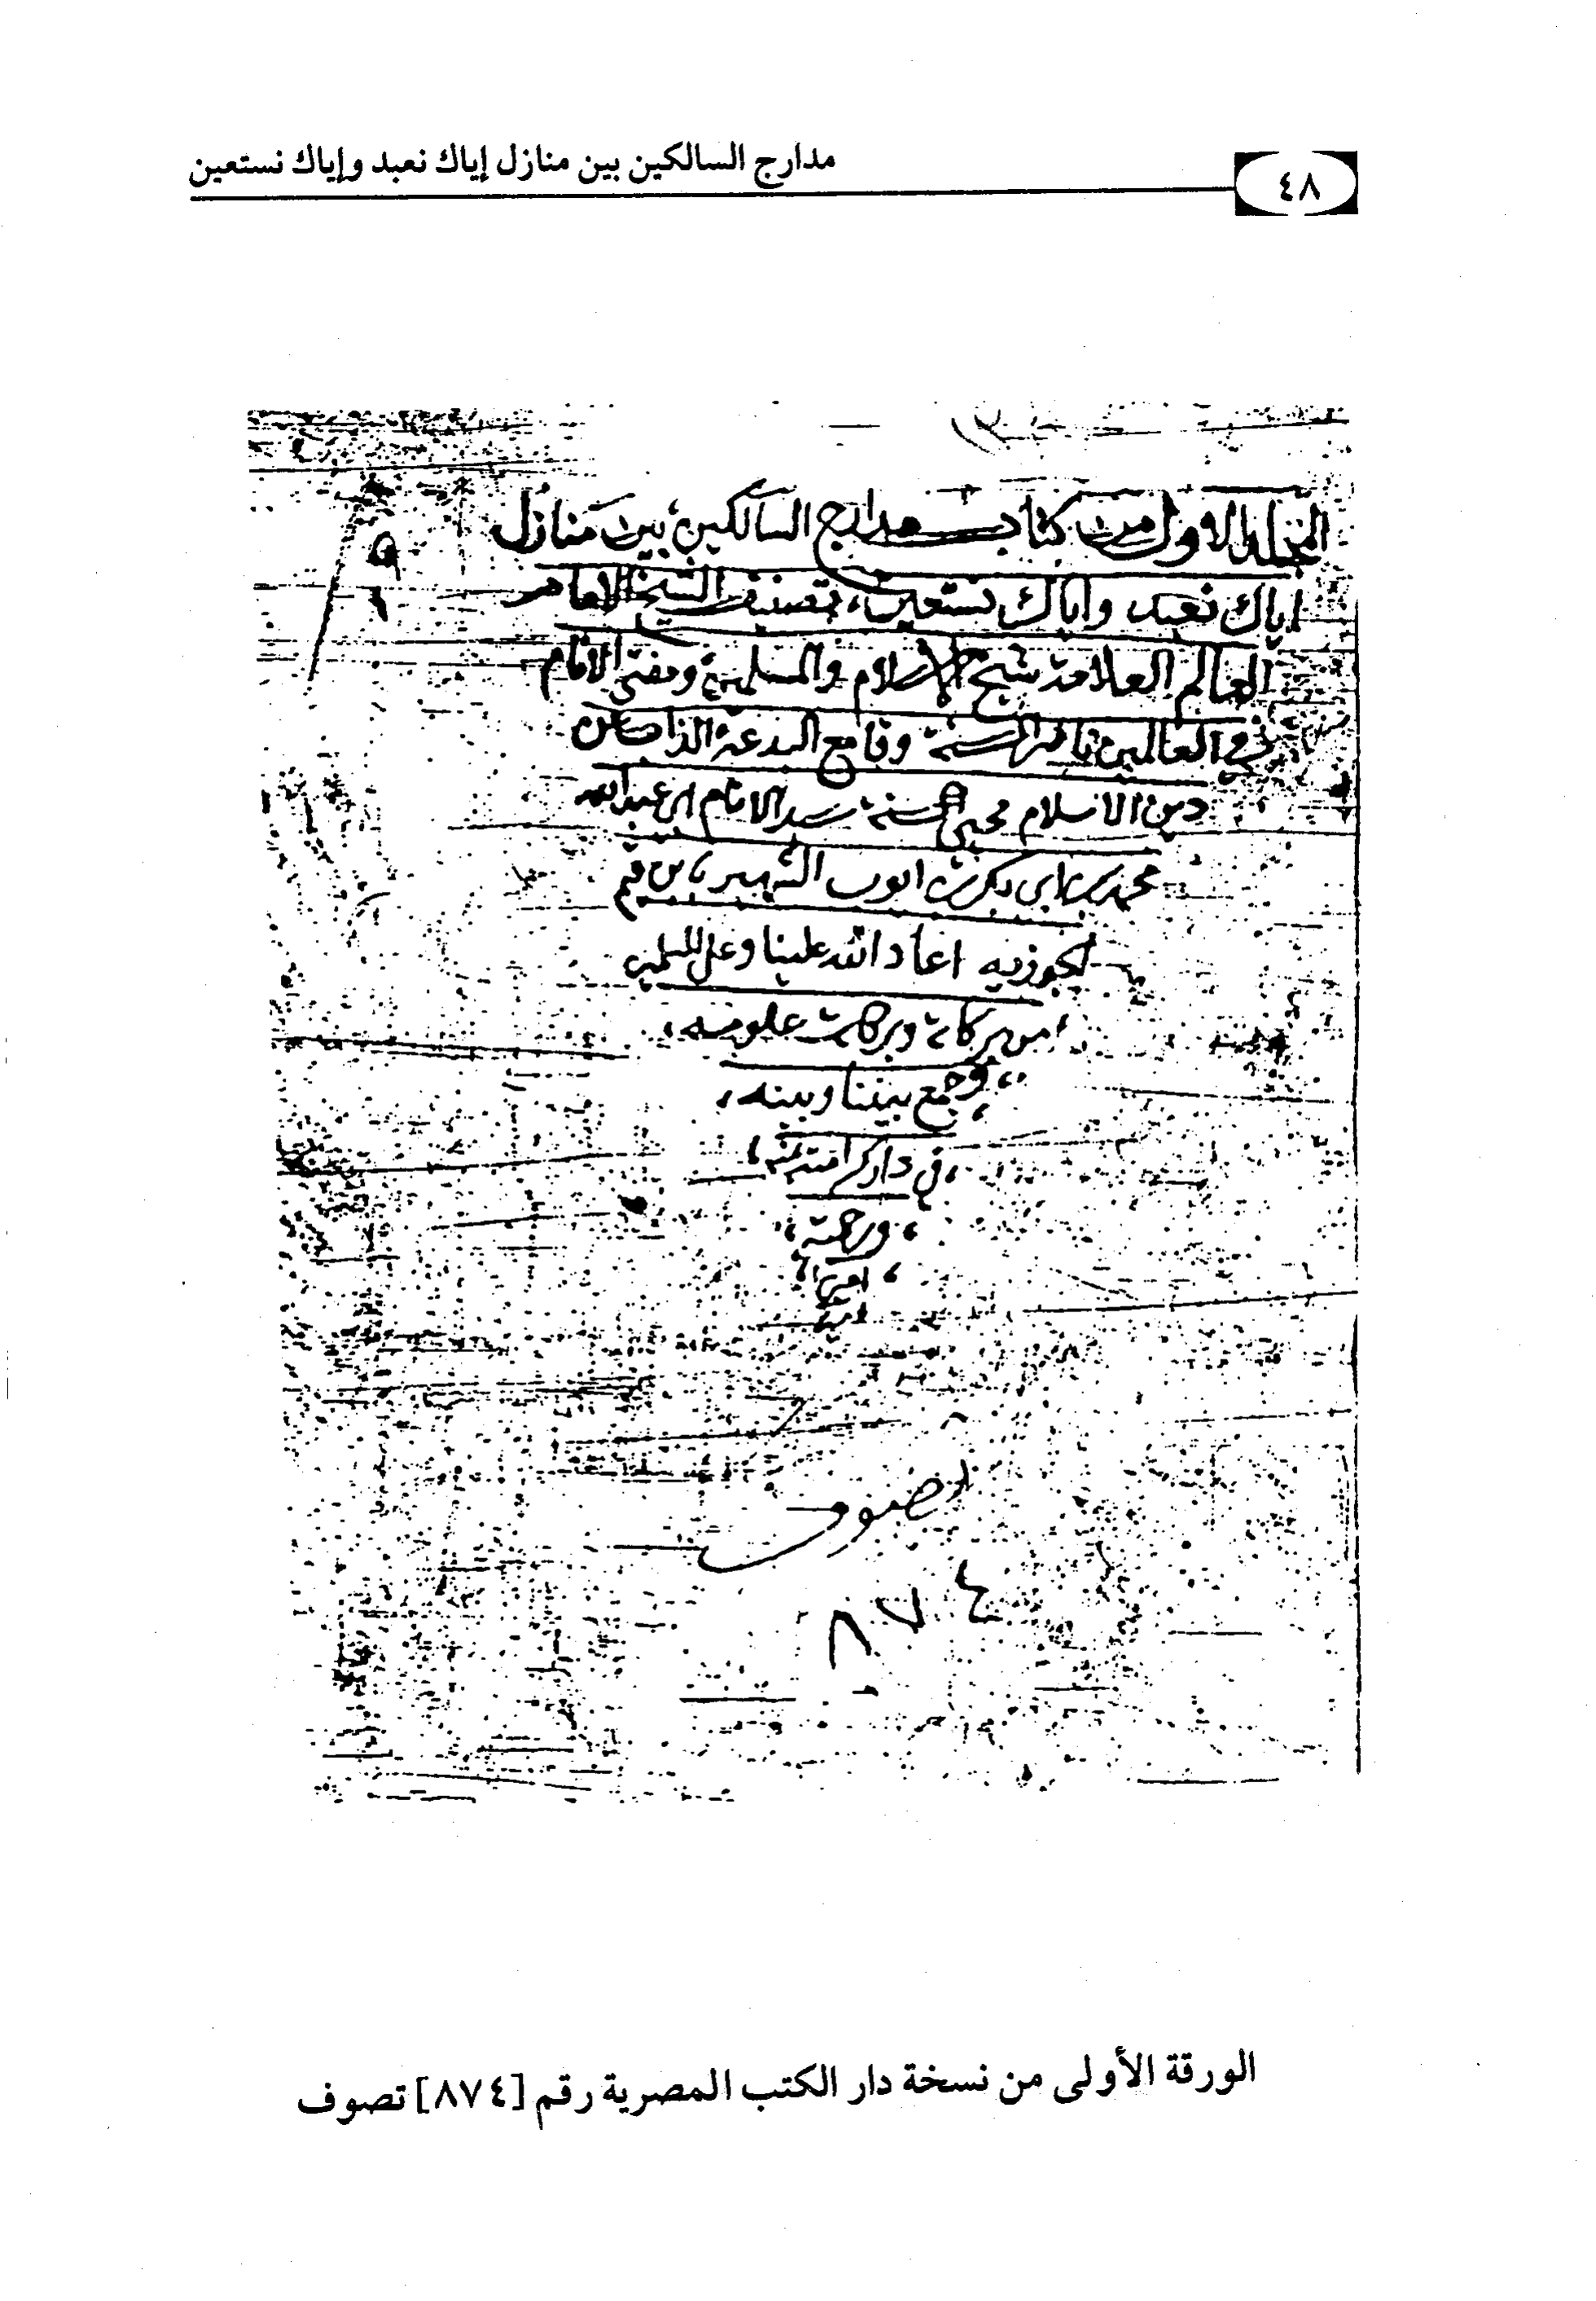 ٤٨
مدارج السالكين بين منازل إياك نعبد وإياك نستعين
المجلد الاول من كتاب مدارج السالكين بين منازل
اياك نعبد واياك نستعين، تصنيف الشيخ الامام
العالم العلامة شيخ الاسلام والمسلمين ومفتى الانام
في العالمين ناصر السنة وقامع البدعة الذاب عن
دين الاسلام محيي السنة سيد الانام ابى عبد الله
محمد بن ابى بكر بن ايوب الشهير بابن قيم
الجوزيه اعاد الله علينا وعلى المسلمين
من بركاته وبركات علومه
وجمع بيننا وبينه
في دار كرامته
ورحمته
امين
امين
تصوف
٨٧٤
الورقة الأولى من نسخة دار الكتب المصرية رقم [٨٧٤] تصوف